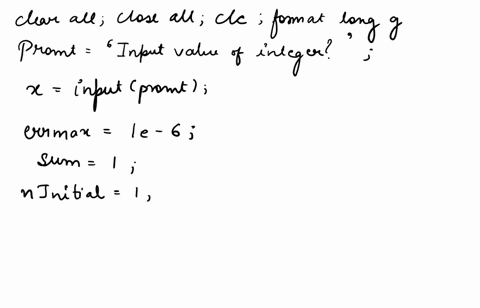 clear all; close all; clc; format long g
Promt = 'Input value of integer?';
x = input(promt);
errmax = 1e-6;
sum = 1;
nInitial = 1,